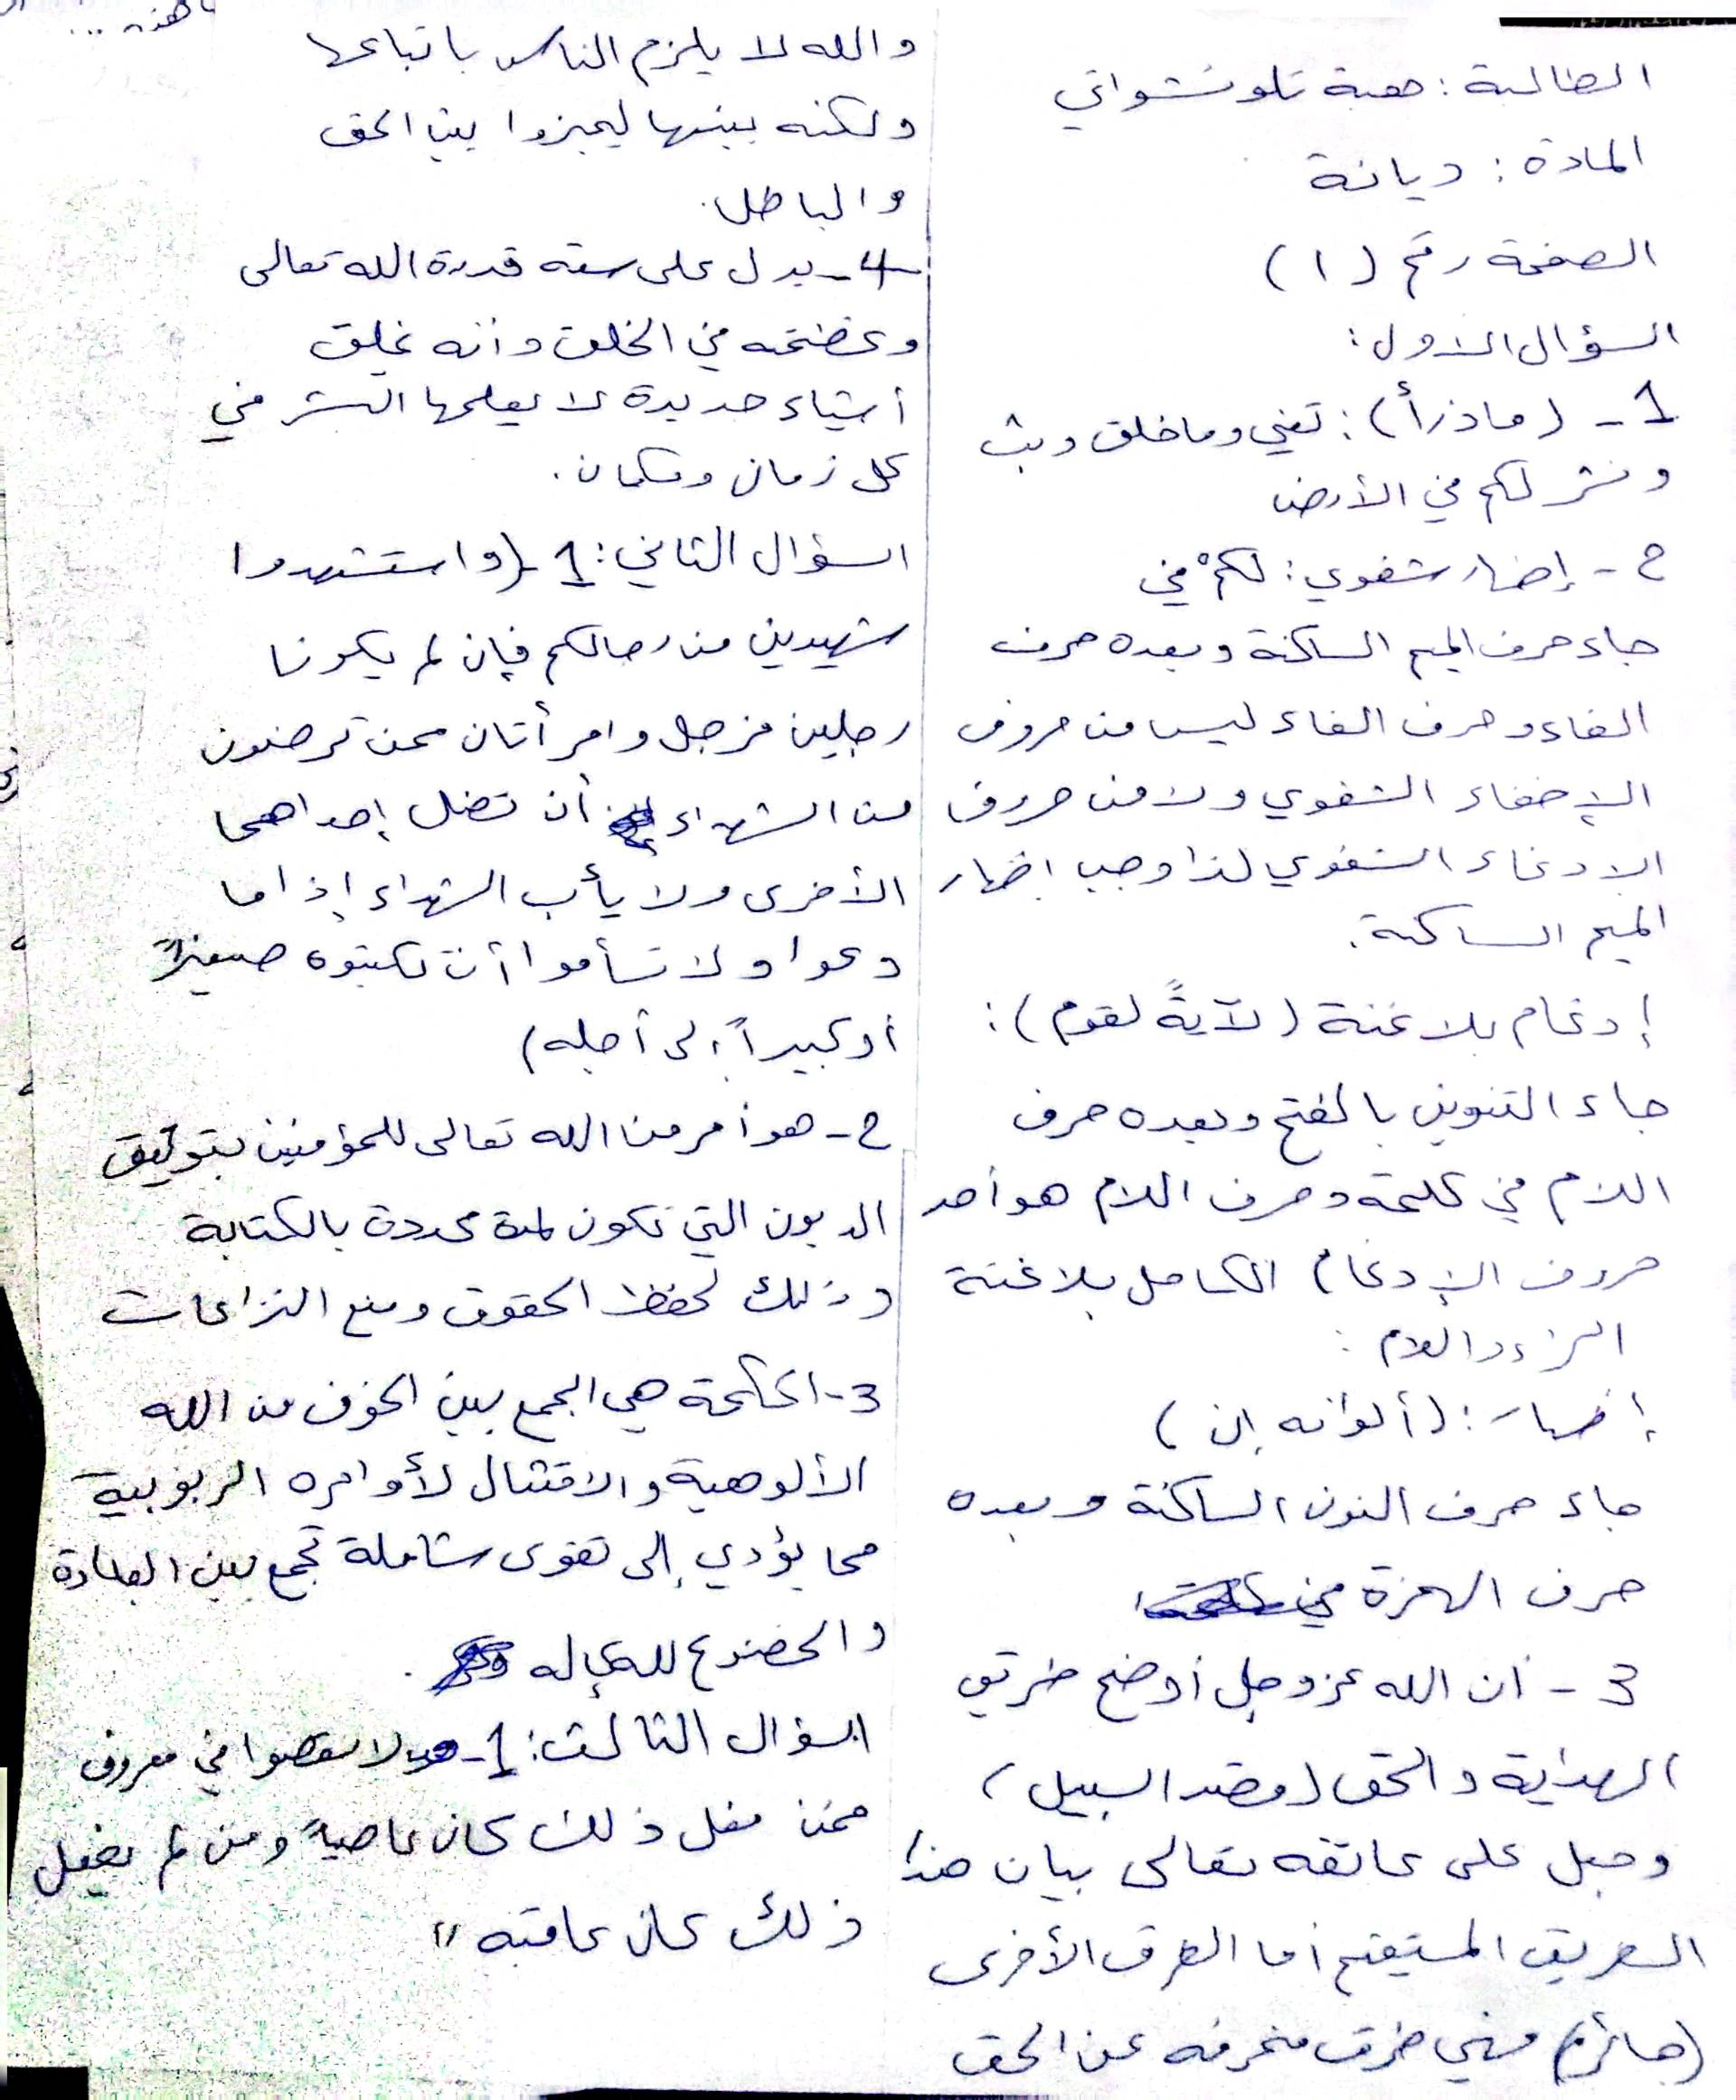 الطالبة : هبة تلو نشواتي
المادة : ديانة
الصفحة رقم (١)
السؤال الاول :
1 - (ماذرأ) : تعني وما خلق وبث
ونشر لكم في الأرض
٢ - إظهار شفوي : لكمْ في
جاء حرف الميم الساكنة وبعده حرف
الفاء وحرف الفاء ليس من حروف
الإخفاء الشفوي ولا من حروف
الادغاء الشفوي لذا وجب اظهار
الميم الساكنة .
إدغام بلا غنة (لآيةً لقوم) :
جاء التنوين بالفتح وبعده حرف
اللام في كلمة وحرف اللام هو أحد
حروف الإدغام الكامل بلا غنة
الراء واللام :
إظهار : (ألوانه إن)
جاء حرف النون الساكنة وبعده
حرف الهمزة في
3 - أن الله عز وجل أوضح طريق
الهداية والحق (قصد السبيل)
وجعل على عاتقه تعالى بيان هذا
الطريق المستيقم أما الطرق الأخرى
(جائرة) فهي طرق منحرفه عن الحق
والله لا يلزم الناس باتباعها
ولكنه بينها ليميزوا بين الحق
والباطل .
4 - يدل على سعة قدرة الله تعالى
وعظمته في الخلق وأنه يخلق
أشياء جديدة لا يعلمها البشر في
كل زمان ومكان .
السؤال الثاني : 1 - (واستشهدوا
شهيدين من رجالكم فإن لم يكونا
رجلين فرجل وامرأتان ممن ترضون
من الشهداء أن تضل إحداهما
الأخرى ولا يأب الشهداء إذا ما
دعوا ولا تسأموا أن تكتبوه صغيراً
أو كبيراً إلى أجله)
٢ - هو أمر من الله تعالى للمؤمنين بتوثيق
الديون التي تكون لمدة محددة بالكتابة
وذلك لحفظ الحقوق ومنع النزاعات
3 - الحكمة هي الجمع بين الخوف من الله
الألوهية والامتثال لأوامره الربوبية
مما يؤدي إلى تقوى شاملة تجمع بين العبادة
والخضوع للإله .
السؤال الثالث : 1 - ولا تعصوا في معروف
فمن فعل ذلك كان عاصياً ومن لم يفعل
ذلك كان عاقبه "